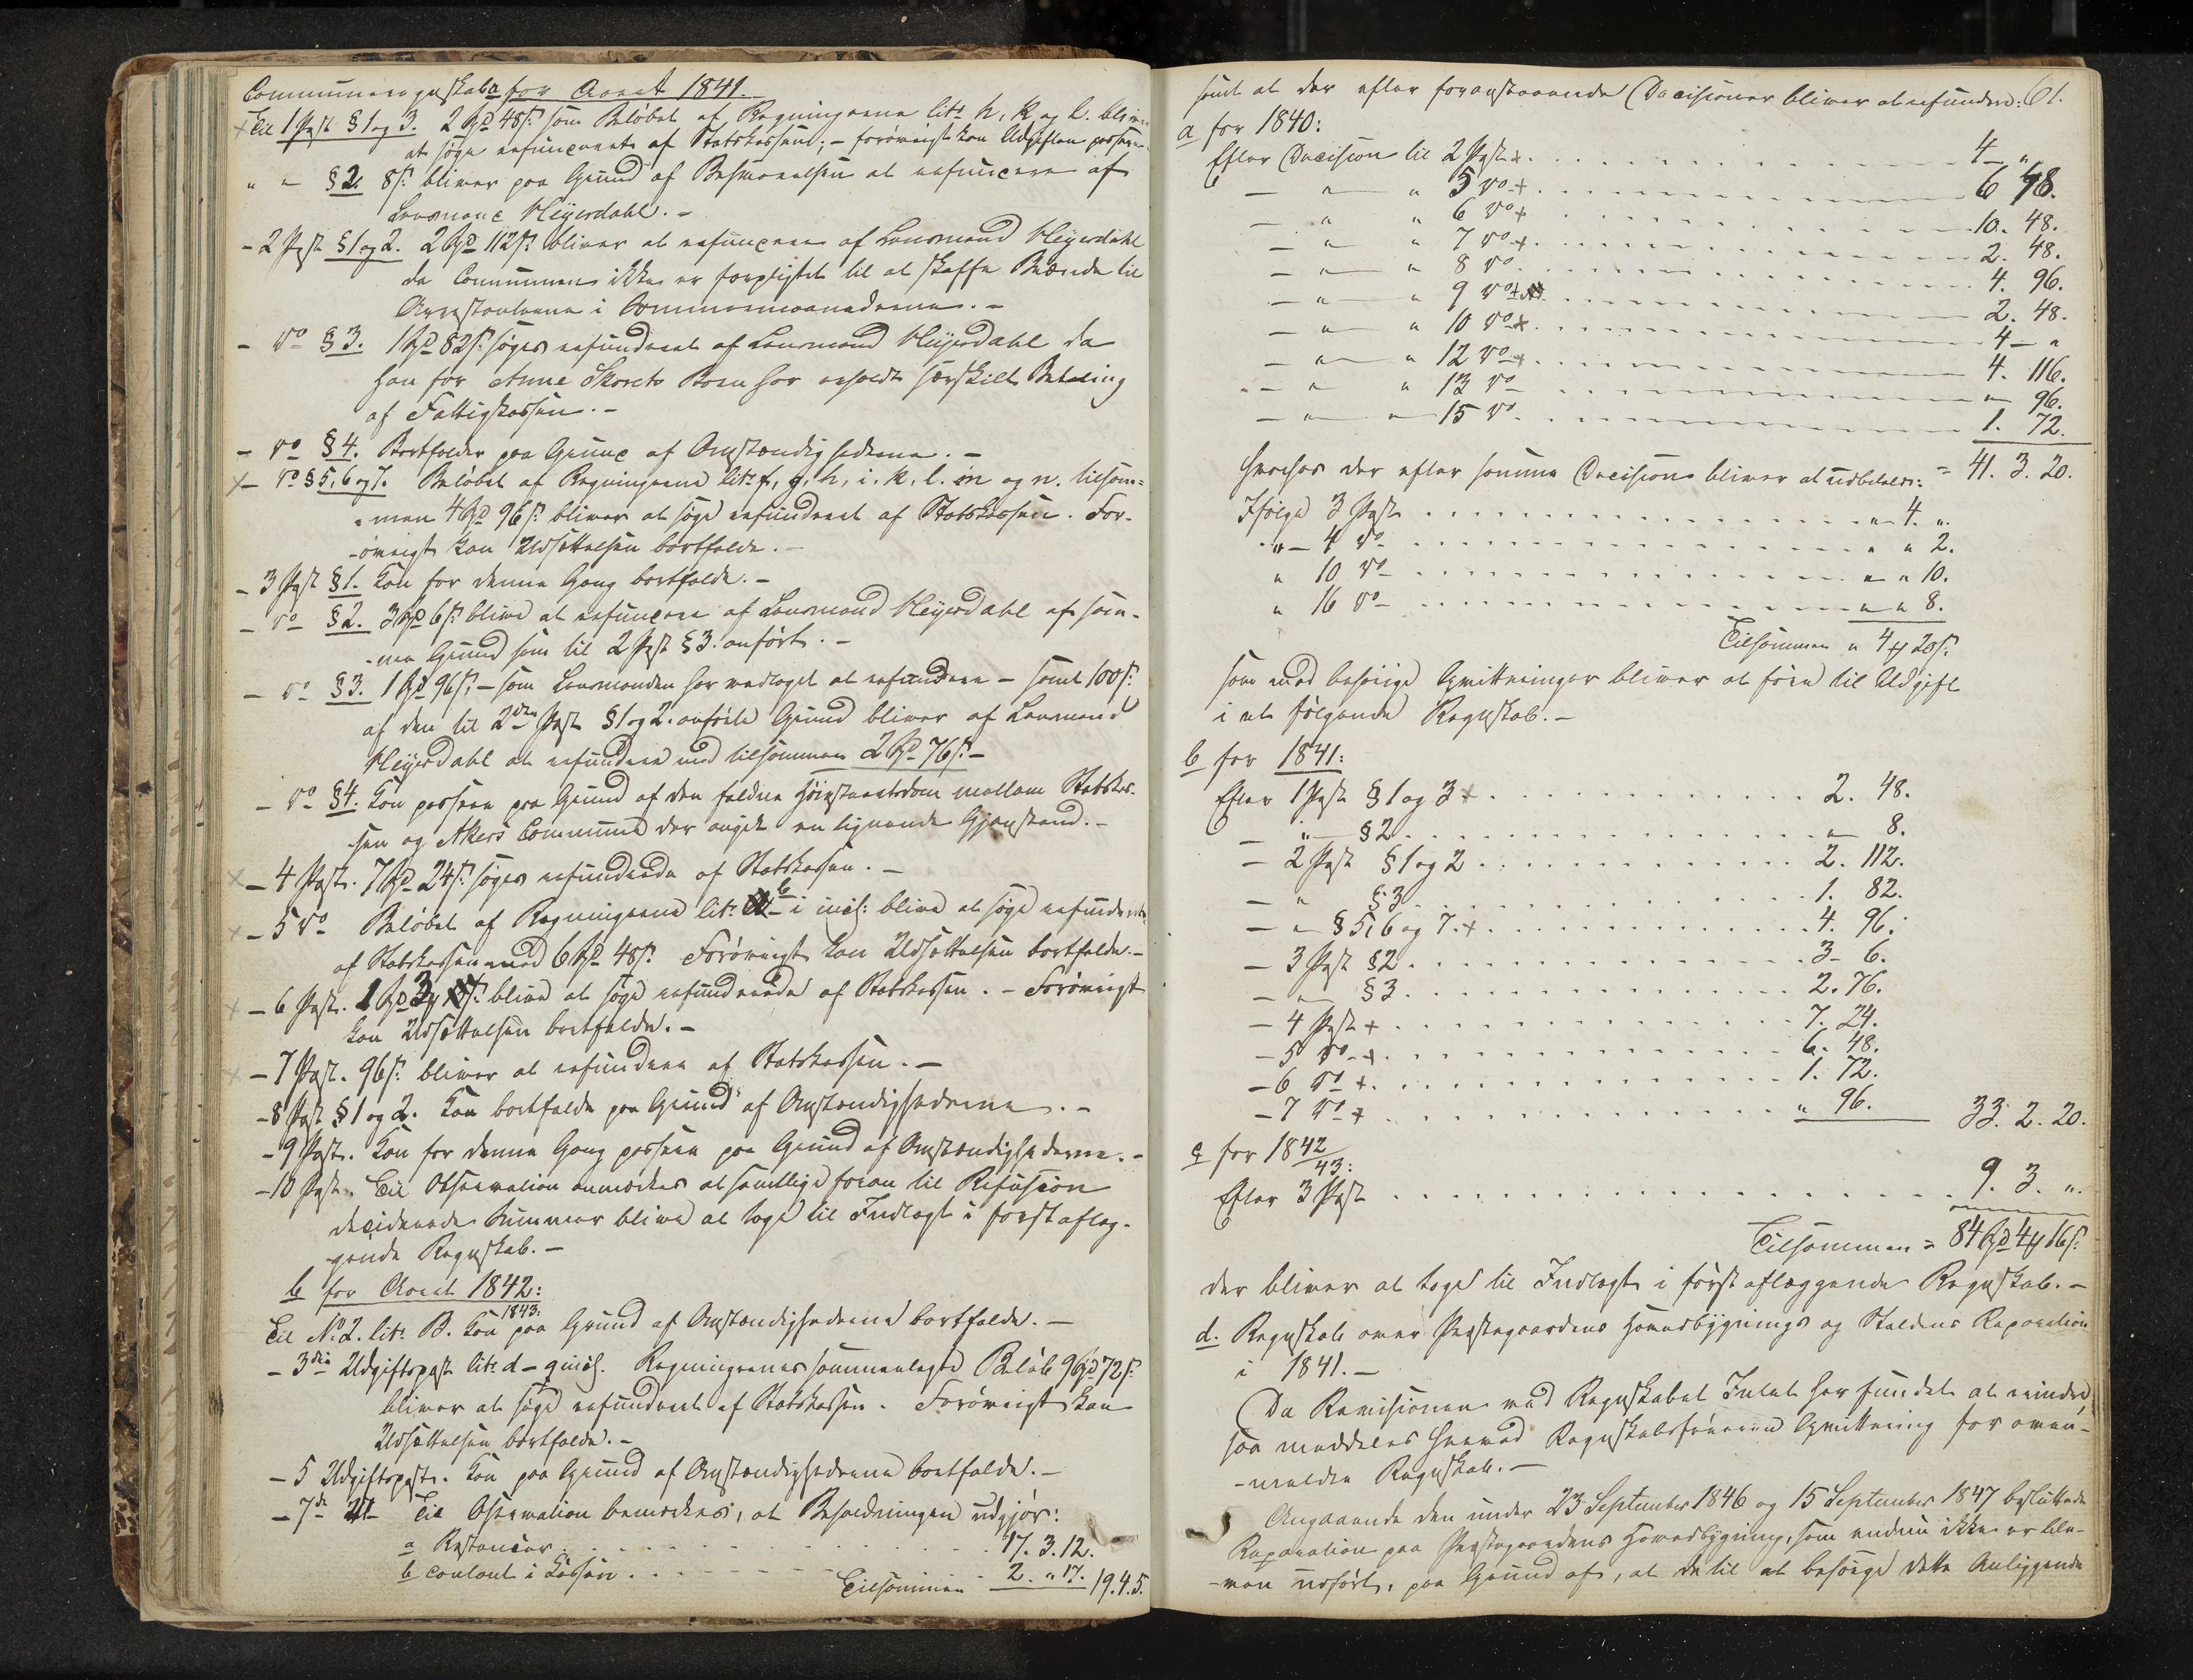 Communeregnskab a for Aaret 1841.
× Til 1 Post § 1 og 3. 2 Spd 48 s. som Beløbet af Regningerne litr. h, k og l. bliver
at søge refunderet af Statskassen; – forøvrigt kan Udgiften passere.
" – § 2. 8 s. bliver paa Grund af Besvarelsen at refundere af
Lensmand Heyerdahl. –
– 2 Post § 1 og 2. 2 Spd 112 s. bliver at refundere af Lensmand Heyerdahl
da Communen ikke er forpligtet til at skaffe Brænde til
Arrestanterne i Sommermaanederne. –
– do § 3. 1 Spd 82 s. søges refunderet af Lensmand Heyerdahl da
han for Anne Skorets Børn har erholdt særskilt Betaling
af Fattigkassen. –
– do § 4. Bortfalder paa Grund af Omstændighederne. –
× – do § 5, 6 og 7. Beløbet af Regningerne litr. f, g, h, i, k, l. m og n. tilsam-
men 4 Spd 96 s. bliver at søge refunderet af Statskassen. For-
øvrigt kan Udsættelsen bortfalde. –
– 3 Post § 1. Kan for denne Gang bortfalde. –
– do § 2. 3 Spd 6 s. blive at refundere af Lensmand Heyerdahl af sam-
me Grund som til 2 Post § 3. anført. –
– do § 3. 1 Spd 96 s. – som Lensmanden har vedtaget at refundere – samt 100 s.
af den til 2den Post § 1 og 2. anførte Grund bliver af Lensmand
Heyerdahl at refundere med tilsammen 2 Spd 76 s. –
– do § 4. Kan passere paa Grund af den faldne Høiesteretsdom mellem Statskas-
sen og Akers Commune der angik en lignende Gjenstand. –
× – 4 Post. 7 Spd 24 s. søges refunderede af Statskassen. –
× – 5 do Beløbet af Regningerne litr. b – i incl: blive at søge refunderede
af Statskassen med 6 Spd 48 s. Forøvrigt kan Udsættelsen bortfalde. –
× – 6 Post. 1 Spd 3 blive at søge refunderede af Statskassen. – Forøvrigt
kan Udsættelsen bortfalde. –
× – 7 Post. 96 s. bliver at refundere af Statskassen. –
– 8 Post § 1 og 2. Kan bortfalde paa Grund af Omstændighederne. –
– 9 Post. Kan for denne Gang passere paa Grund af Omstændighederne. –
– 10 Post. Til Observation anmærkes at samtlige foran til Refusion
deciderede Summer blive at tage til Indtægt i først aflæg-
gende Regnskab. –
b for Aaret 1842:
1843:
Til No 2. litr. B. Kan paa Grund af Omstændighederne bortfalde. –
– 3die Udgiftspost litr. d – q incl. Regningernes sammenlagte Beløb 9 Spd 72 s.
bliver at søge refunderet af Statskassen. Forøvrigt kan
Udsættelsen bortfalde. –
– 5 Udgiftspost. Kan paa Grund af Omstændighederne bortfalde. –
– 7de Til Observation bemærkes, at Beholdningen udgjør:
a Restancer . . . . 17. 3. 12.
b contant i Kassen . . . . 2. " 17.
Tilsammen 19. 4. 5.
samt at der efter foranstaaende Decisioner bliver at refundere: 61.
a for 1840:
Efter Decision til 2 Post + . . . . 4 – "
– " – " 5 do + . . . . 6 48.
– " " 6 do + . . . . 10. 48.
– " – " 7 do + . . . . 2. 48.
– " – " 8 do . . . . 4. 96.
– " " 9 do + . . . . 2. 48.
– " – " 10 do + . . . . 4 – "
– " – " 12 do + . . . . 4. 116.
– " " 13 do . . . . " 96.
– " – " 15 do . . . . 1. 72.
41. 3. 20.
Hvorhos der efter samme Decision bliver at udbetale:
Ifølge 3 Post . . . . " 4. "
" – 4 do . . . . " " 2.
" 10 do . . . . " " 10.
" 16 do . . . . " " 8.
Tilsammen " 4 20 s.
som mod behørige Qvitteringer bliver at føre til Udgift
i et følgende Regnskab. –
b for 1841:
Efter 1 Post § 1 og 3 + . . . . 2. 48.
– " – § 2 . . . . " 8.
– 2 Post § 1 og 2 . . . . 2. 112.
– " § 3 . . . . 1. 82.
– " – § 5, 6 og 7. + . . . . 4. 96.
– 3 Post § 2 . . . . 3 – 6.
– " – § 3 . . . . 2. 76.
– 4 Post + . . . . 7. 24.
– 5 do + . . . . 6. 48.
– 6 do + . . . . 1. 72.
– 7 do + . . . . " 96. 33. 2. 20.
c for 1842
43:
Efter 3 Post . . . . 9. 3. "
Tilsammen = 84 Spd 4 16 s.
der bliver at tage til Indtægt i først aflæggende Regnskab. –
d. Regnskab over Præstegaardens Hovedbygnings og Staldens Reparation
i 1841. –
Da Revisionen ved Regnskabet Intet har fundet at erindre
saa meddeles herved Regnskabsføreren Qvittering for oven-
meldte Regnskab. –
Angaaende den under 23 September 1846 og 15 September 1847 besluttede
Reparation paa Præstegaardens Hovedbygning, som endnu ikke er ble-
ven udført, paa Grund af, at de til at besørge dette Anliggende